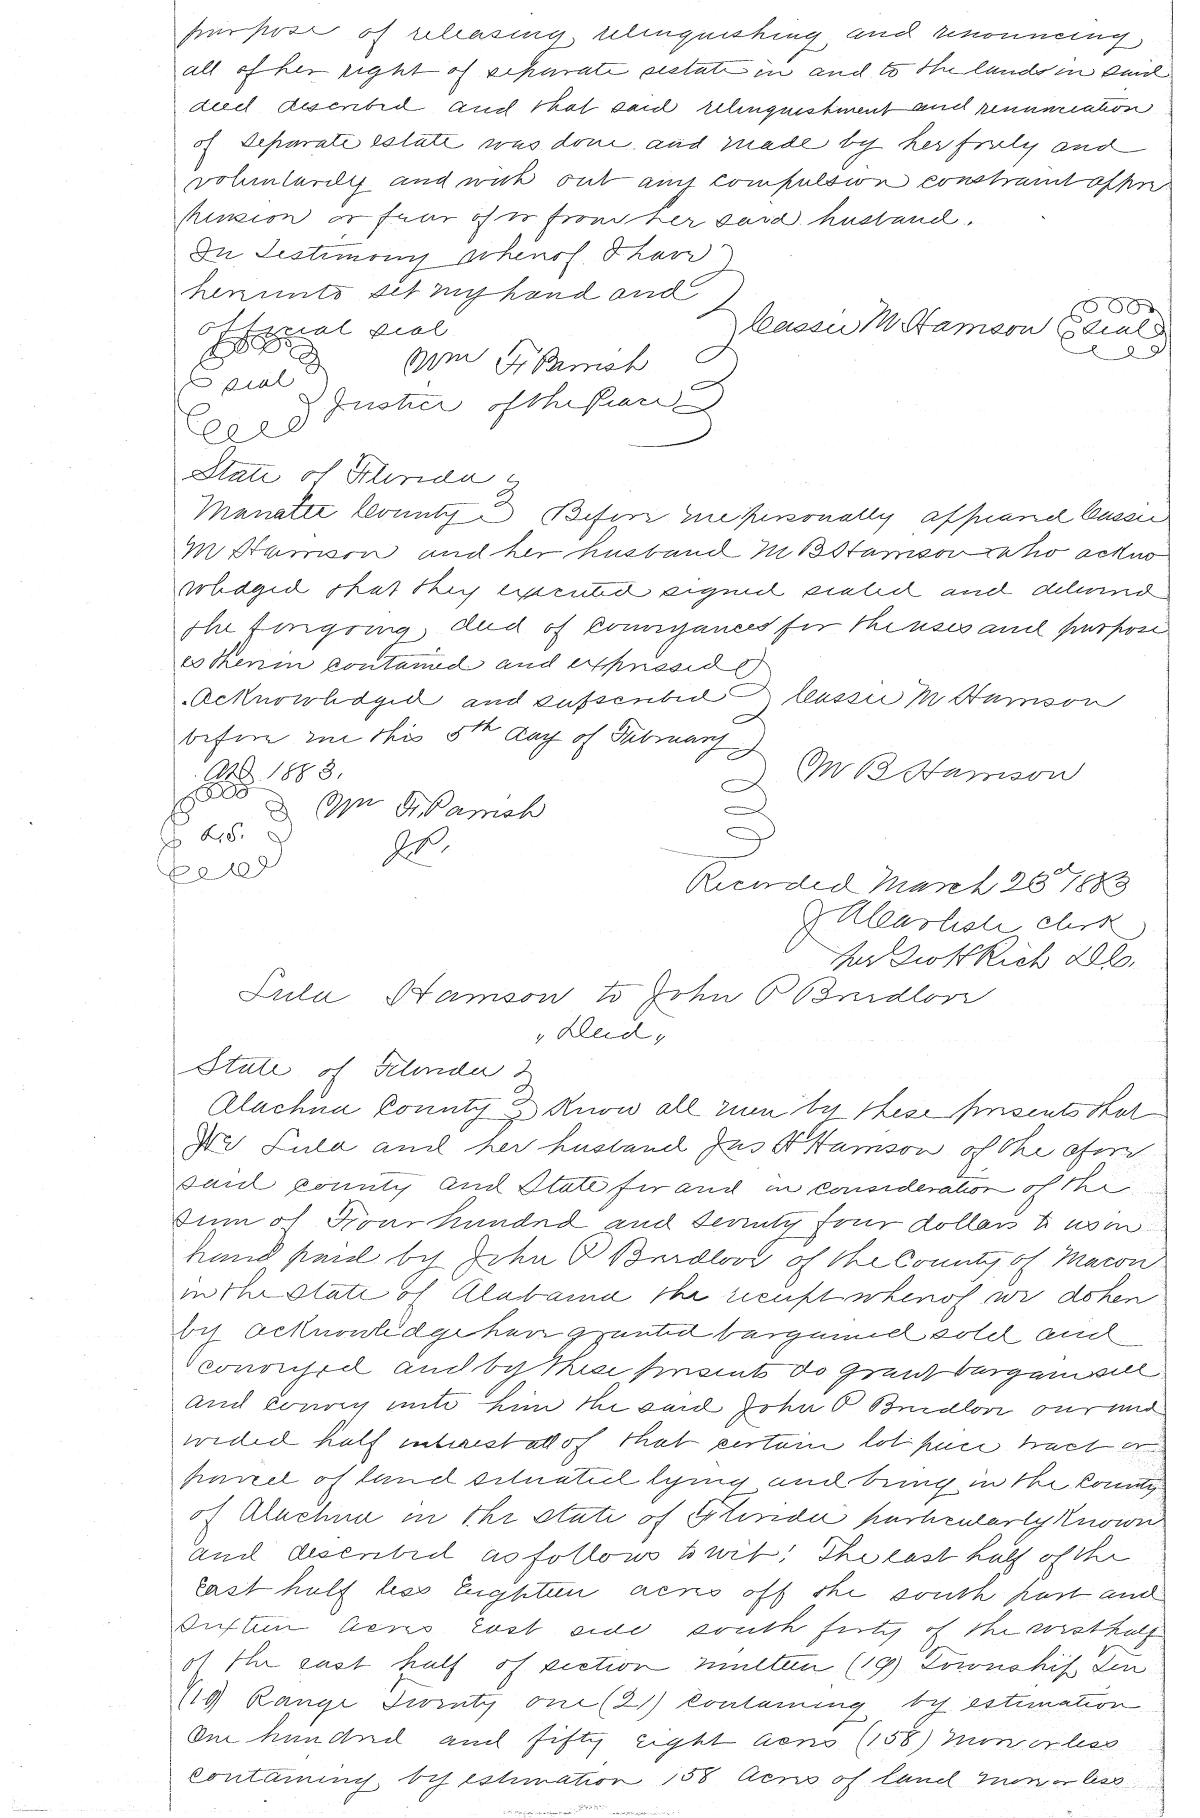 purpose of releasing, relinquishing and renouncing
all of her right of separate estate in and to the lands in said
deed described and that said relinquishment and renunciation
of separate estate was done and made by her freely and
voluntarily and with out any compulsion constraint appre
hension or fear of or from her said husband.
In Testimony whereof I have
hereunto set my hand and
official seal
Cassie M Harrison Seal
Wm F. Parrish
seal
Justice of the Peace
State of Florida
Manatee County Before me personally appeared Cassie
M Harrison and her husband M B Harrison who ackno
wledged that they executed signed sealed and delivered
the foregoing deed of Conveyances for the uses and purpose
es therein contained and expressed
Acknowledged and subscribed Cassie M Harrison
before me this 5th day of February
AD. 1883. M B Harrison
Wm F. Parrish
L.S.
JP.
Recorded March 26" 1883
J A Carlisle clerk
per Scott Rich D.C.
Lula Harrison to John P Breedlove
"Deed"
State of Florida
Alachua County Know all men by these presents that
We Lula and her husband Jas H Harrison of the afore
said county and State for and in consideration of the
sum of Four hundred and seventy four dollars to us in
hand paid by John P Breedlove of the County of Macon
in the state of Alabama the receipt whereof we do her
by acknowledge have granted bargained sold and
conveyed and by these presents do grant bargain sell
and convey unto him the said John P Breedlove our und
ivided half interest all of that certain lot piece tract or
parcel of land situated lying and being in the County
of Alachua in the state of Florida particularly Known
and described as follows to wit: The east half of the
East half less Eighteen acres off the south part and
Sixteen Acres East side south forty of the west half
of the east half of section nineteen (19) Township Ten
(10) Range Twenty one (21) Containing by estimation
One hundred and fifty eight acres (158) more or less
containing by estimation 158 Acres of land more or less